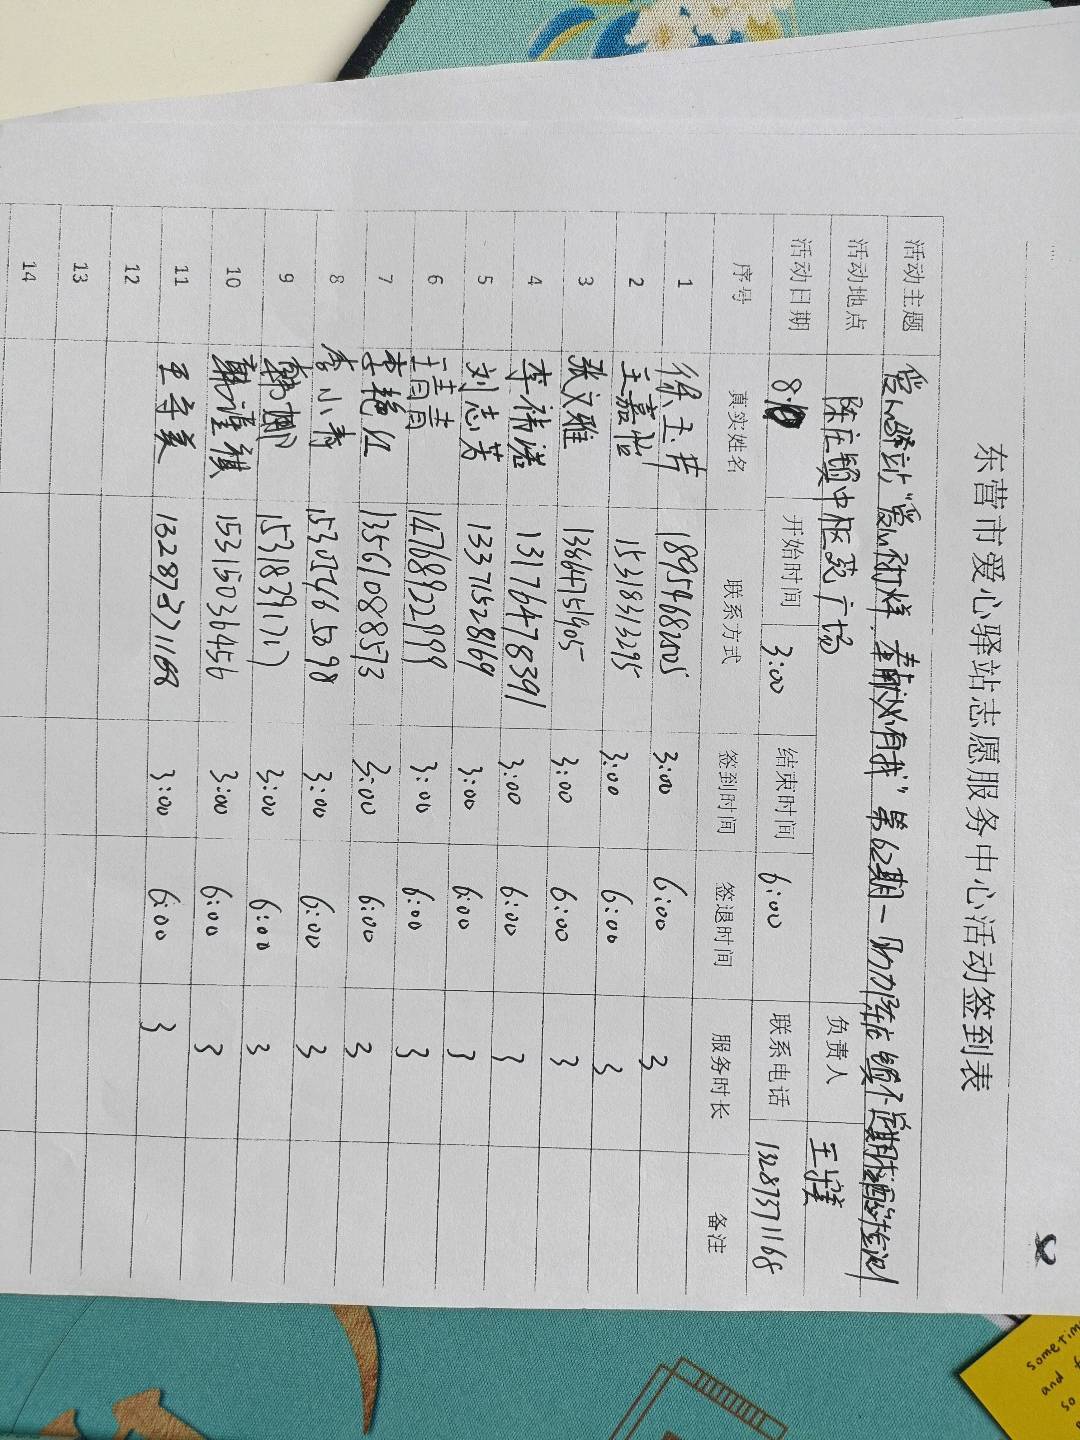 东营市爱心驿站志愿服务中心活动签到表
活动主题 爱心驿站"爱心陪伴,有我"第62期—助力陈庄镇不定期核酸检测
活动地点 陈庄镇中心广场 负责人 王
活动日期 8. 开始时间 3:00 结束时间 6:00 联系电话 13287371168
序号 真实姓名 联系方式 签到时间 签退时间 服务时长 备注
1 徐玉芹 18954682005 3:00 6:00 3
2 王嘉怡 15318313295 3:00 6:00 3
3 张文雅 13864751905 3:00 6:00 3
4 李 13176478391 3:00 6:00 3
5 刘志芳 13371528169 3:00 6:00 3
6 王青青 14768922999 3:00 6:00 3
7 李艳红 13561088573 3:00 6:00 3
8 李小青 3:00 6:00 3
9 韩娜 15318391717 3:00 6:00 3
10 韩 15315036456 3:00 6:00 3
11 王学美 13287371168 3:00 6:00 3
12
13
14
sometim
and f
so